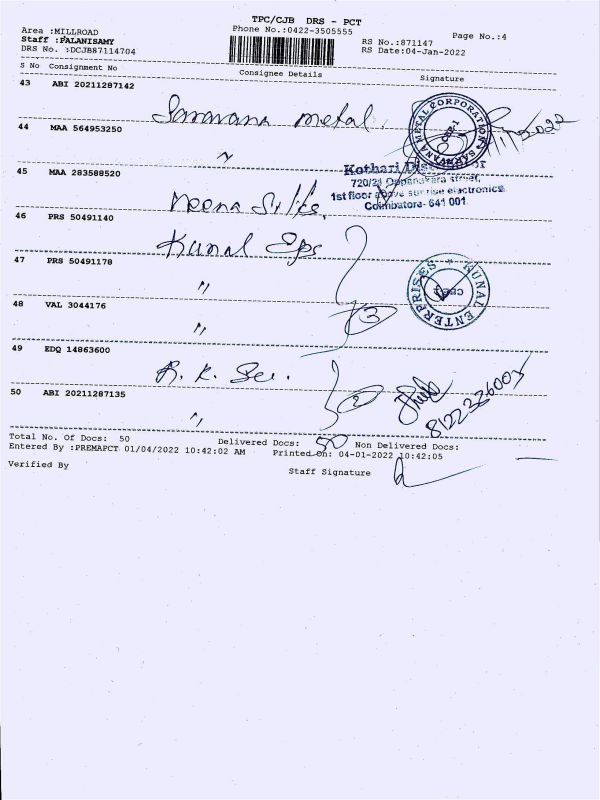 TPC/CJB DRS - PCT
Area :MILLROAD Phone No.:0422-3505555 Page No.:4
Staff :PALANISAMY RS No.:871147
DRS No. :DCJB87114704 RS Date:04-Jan-2022
S No Consignment No Consignee Details Signature
43 ABI 20211287142
Saravana metal.
SARAVANA METAL CORPORATION
CBE-1
44 MAA 564953250
"
45 MAA 283588520
Kothari
720/21 Oppanakara street,
1st floor above sunrise electronics
Coimbatore- 641 001
Meena Silks,
46 PRS 50491140
Kunal Eps
47 PRS 50491178
"
KUNAL ENTERPRISES
48 VAL 3044176
"
3
49 EDQ 14863600
R. K. Ser.
50 ABI 20211287135
"
2
8122326007
Total No. Of Docs: 50 Delivered Docs: 50 Non Delivered Docs: —
Entered By :PREMAPCT 01/04/2022 10:42:02 AM Printed On: 04-01-2022 10:42:05
Verified By Staff Signature